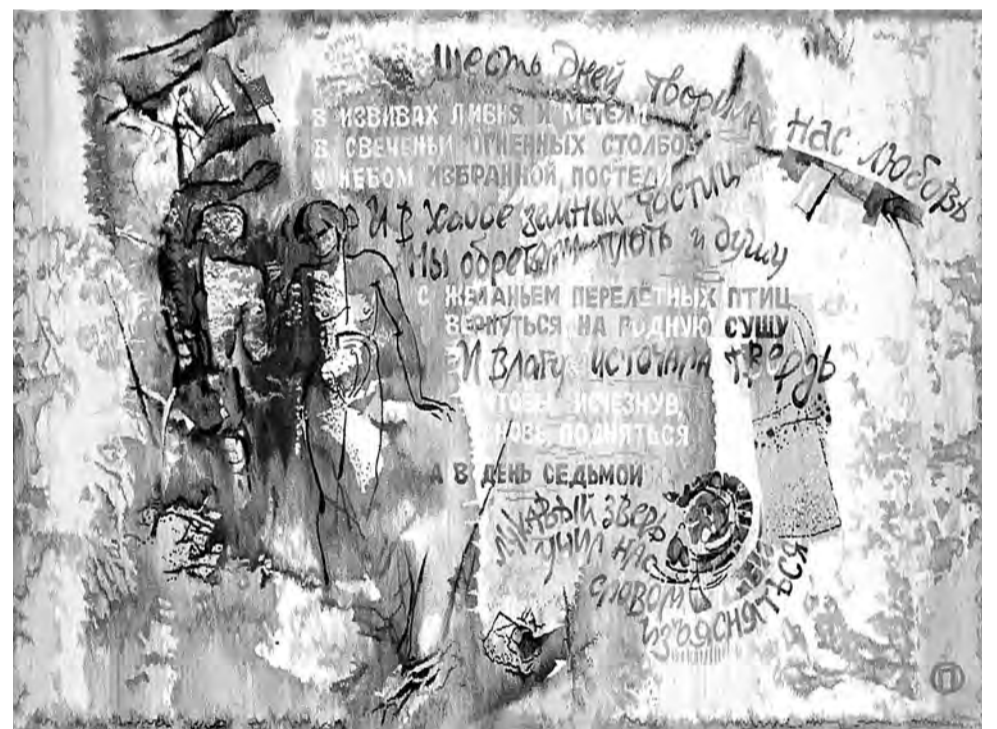 Шесть дней творила нас любовь
В ИЗВИВАХ ЛИВНЯ И МЕТЕЛИ
В СВЕЧЕНЬИ ОГНЕННЫХ СТОЛБОВ
У НЕБОМ ИЗБРАННОЙ ПОСТЕЛИ
И в хаосе земных частиц
Мы обретали плоть и душу
С ЖЕЛАНЬЕМ ПЕРЕЛЁТНЫХ ПТИЦ
ВЕРНУТЬСЯ НА РОДНУЮ СУШУ
И влагу источала твердь
ЧТОБЫ ИСЧЕЗНУВ,
ВНОВЬ ПОДНЯТЬСЯ
А В ДЕНЬ СЕДЬМОЙ
ЛУКАВЫЙ ЗВЕРЬ
УЧИЛ НАС
СЛОВОМ
ИЗЪЯСНЯТЬСЯ
П